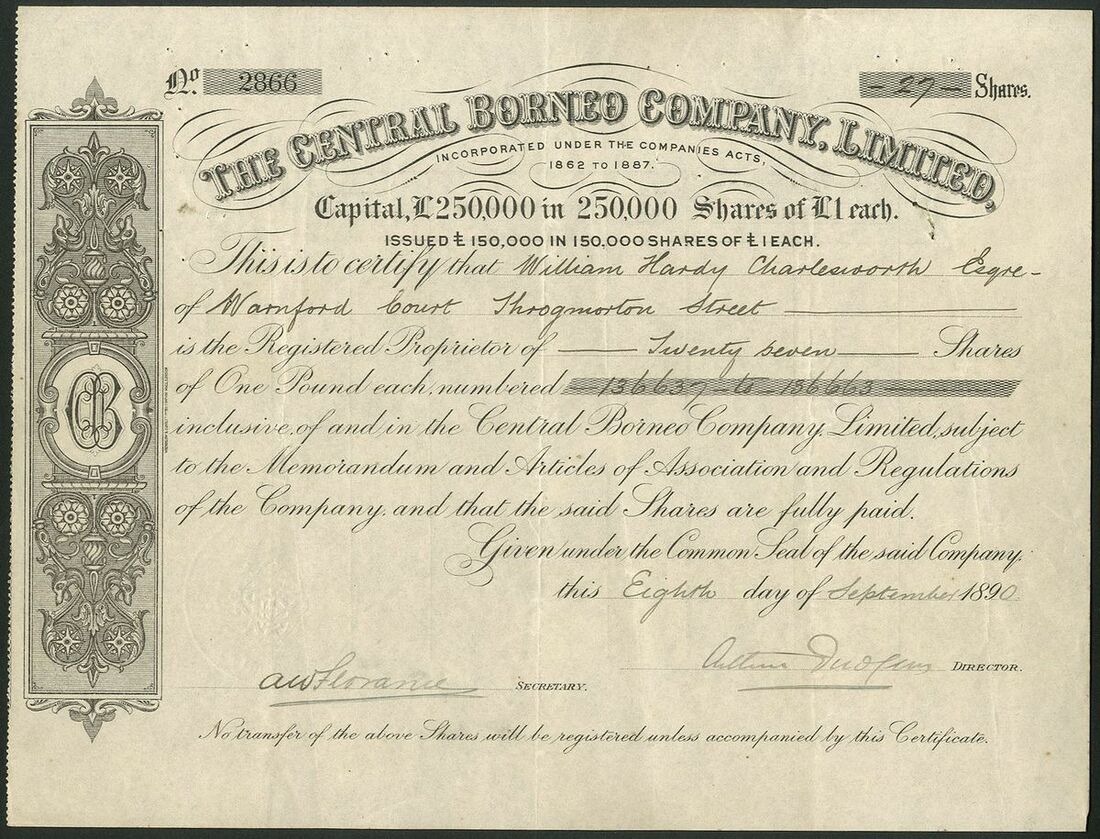 No. 2866
- 27 - Shares.
THE CENTRAL BORNEO COMPANY, LIMITED,
INCORPORATED UNDER THE COMPANIES ACTS,
1862 TO 1887.
Capital, £250,000 in 250,000 Shares of £1 each.
ISSUED £150,000 IN 150,000 SHARES OF £1 EACH.
This is to certify that William Hardy Charlesworth Esqre-
of Warnford Court Throgmorton Street
is the Registered Proprietor of Twenty seven Shares
of One Pound each, numbered 136637 - to - 136663
inclusive, of and in the Central Borneo Company, Limited, subject
to the Memorandum and Articles of Association and Regulations
of the Company, and that the said Shares are fully paid.
Given under the Common Seal of the said Company,
this Eighth day of September 1890
Arthur DIRECTOR.
AW Florance SECRETARY.
No transfer of the above Shares will be registered unless accompanied by this Certificate.